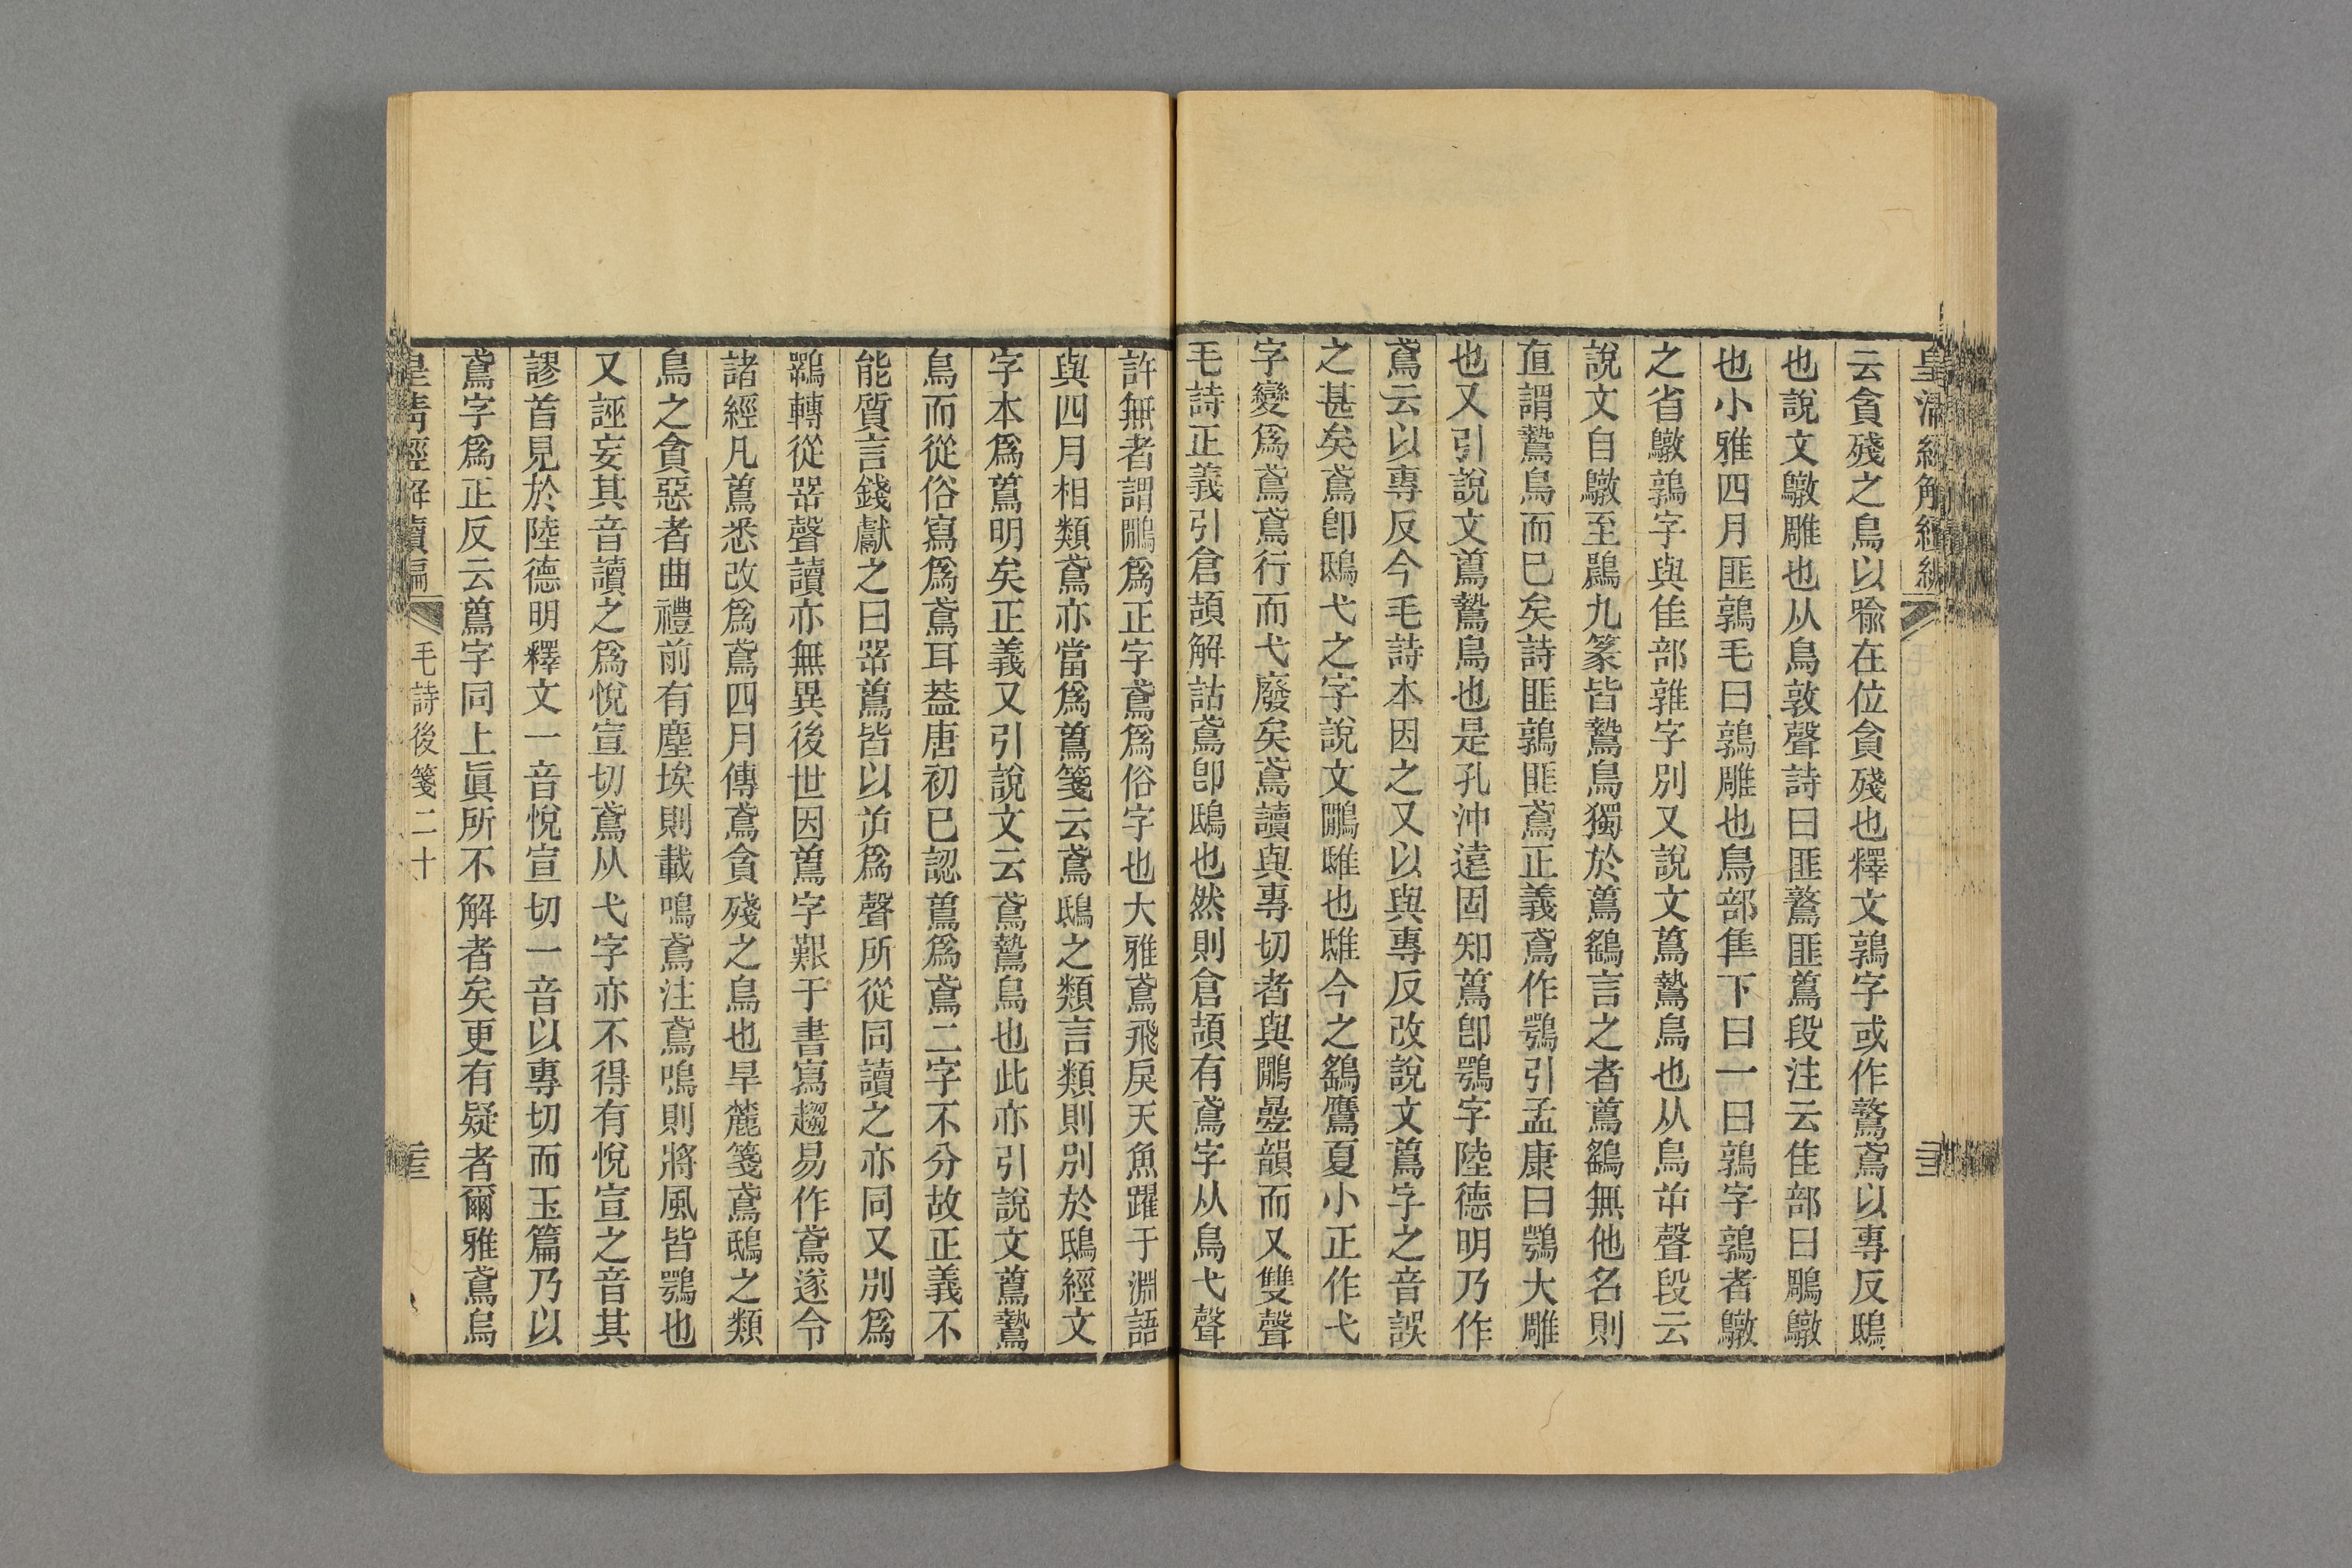 皇清經解續編
云貪殘之鳥以喻在位貪殘也釋文鶉字或作鷻鳶以專反鴟
也說文鷻雕也从鳥敦聲詩曰匪鷻匪䳒段注云隹部曰鵰鷻
也小雅四月匪鶉毛曰鶉雕也鳥部隼下曰一曰鶉字鶉者鷻
之省鷻鶉字與隹部䧫字別又說文䳒鷙鳥也从鳥屰聲段云
說文自鷻至鷐九篆皆鷙鳥獨於䳒鷂言之者䳒鷂無他名則
直謂鷙鳥而已矣詩匪鶉匪鳶正義鳶作鶚引孟康曰鶚大雕
也又引說文䳒鷙鳥也是孔沖遠固知䳒卽鶚字陸德明乃作
鳶云以專反今毛詩本因之又以與專反改說文䳒字之音誤
之甚矣鳶卽鴟弋之字說文鷳雎也雎今之鷂鷹夏小正作弋
字變爲鳶鳶行而弋廢矣鳶讀與專切者與鷳曡韻而又雙聲
毛詩正義引倉頡解詁鳶卽鴟也然則倉頡有鳶字从鳥弋聲
許無者謂鷳爲正字鳶爲俗字也大雅鳶飛戾天魚躍于淵語
與四月相類鳶亦當爲䳒箋云鳶鴟之類言類則別於鴟經文
字本爲䳒明矣正義又引說文云鳶鷙鳥也此亦引說文䳒鷙
鳥而從俗寫爲鳶耳葢唐初已認䳒爲鳶二字不分故正義不
能質言錢獻之曰咢䳒皆以屰爲聲所從同讀之亦同又別爲
鶚轉從咢聲讀亦無異後世因䳒字艱于書寫趨易作鳶遂令
諸經凡䳒悉改爲鳶四月傳鳶貪殘之鳥也旱麓箋鳶鴟之類
鳥之貪惡者曲禮前有塵埃則載鳴鳶注鳶鳴則將風皆鶚也
又誣妄其音讀之爲悅宣切鳶从弋字亦不得有悅宣之音其
謬首見於陸德明釋文一音悅宣切一音以專切而玉篇乃以
鳶字爲正反云䳒字同上眞所不解者矣更有疑者爾雅鳶烏
皇清經解續編 毛詩後箋二十